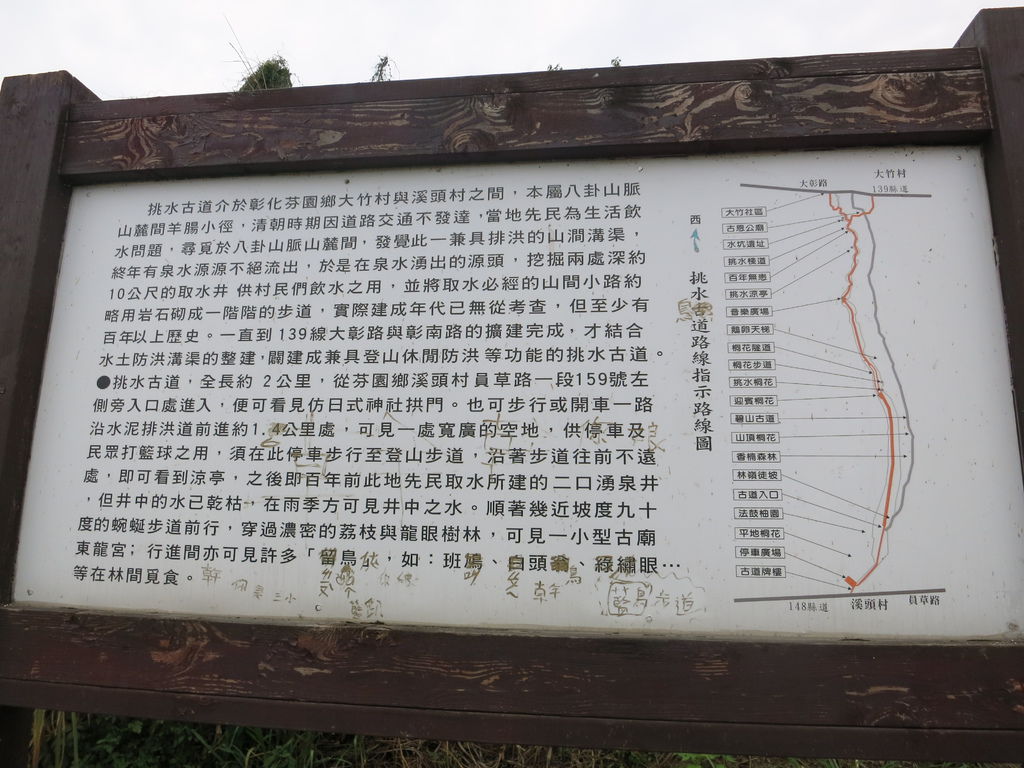 挑水古道介於彰化芬園鄉大竹村與溪頭村之間，本屬八卦山脈
山麓間羊腸小徑，清朝時期因道路交通不發達，當地先民為生活飲
水問題，尋覓於八卦山脈山麓間，發覺此一兼具排洪的山澗溝渠，
終年有泉水源源不絕流出，於是在泉水湧出的源頭，挖掘兩處深約
10公尺的取水井 供村民們飲水之用，並將取水必經的山間小路約
略用岩石砌成一階階的步道，實際建成年代已無從考查，但至少有
百年以上歷史。一直到139線大彰路與彰南路的擴建完成，才結合
水土防洪溝渠的整建，闢建成兼具登山休閒防洪等功能的挑水古道。
●挑水古道，全長約 2公里，從芬園鄉溪頭村員草路一段159號左
側旁入口處進入，便可看見仿日式神社拱門。也可步行或開車一路
沿水泥排洪道前進約1.4公里處，可見一處寬廣的空地，供停車及
民眾打籃球之用，須在此停車步行至登山步道，沿著步道往前不遠
處，即可看到涼亭，之後即百年前此地先民取水所建的二口湧泉井
，但井中的水已乾枯，在雨季方可見井中之水。順著幾近坡度九十
度的蜿蜒步道前行，穿過濃密的荔枝與龍眼樹林，可見一小型古廟
東龍宮；行進間亦可見許多「留鳥，如：班鳩、白頭翁、綠繡眼…
等在林間覓食。
西
挑水古道路線指示路線圖
大彰路
大竹村
139縣道
大竹社區
古恩公廟
水坑遺址
挑水棧道
百年無患
挑水涼亭
音樂廣場
鵝卵天梯
桐花隧道
桐花步道
挑水桐花
迎賓桐花
碧山古道
山頂桐花
香楠森林
林嶺徒坡
古道入口
法鼓柚園
平地桐花
停車廣場
古道牌樓
148縣道
溪頭村
員草路
步道